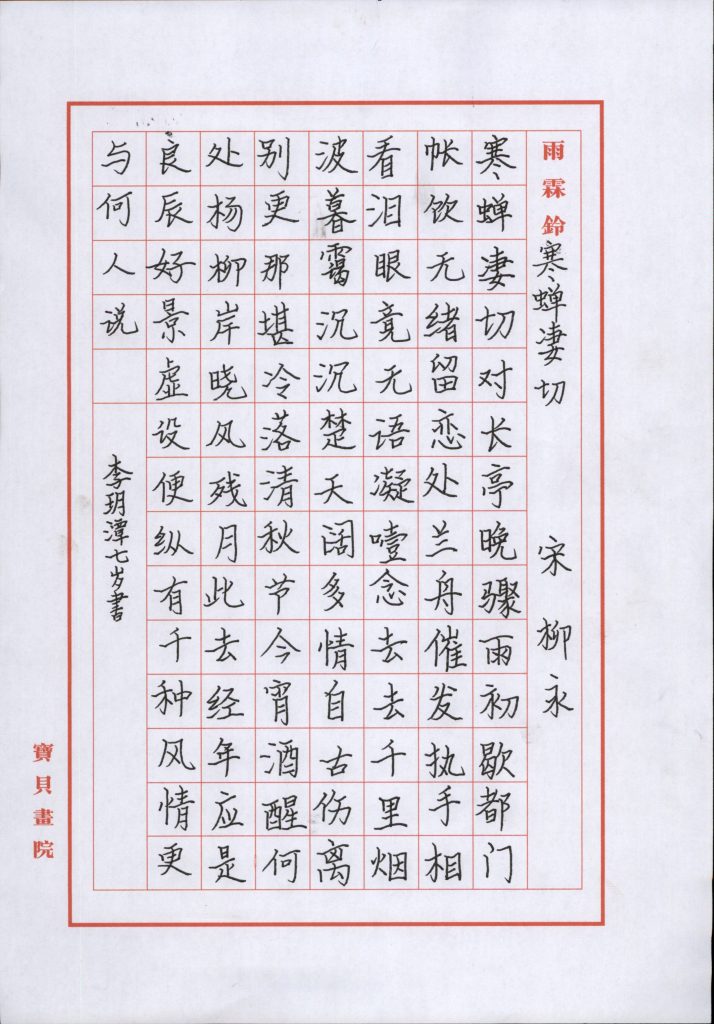 雨霖鈴寒蝉凄切 宋 柳永
寒蝉凄切对长亭晚骤雨初歇都门
帐饮无绪留恋处兰舟催发执手相
看泪眼竟无语凝噎念去去千里烟
波暮霭沉沉楚天阔多情自古伤离
别更那堪冷落清秋节今宵酒醒何
处杨柳岸晓风残月此去经年应是
良辰好景虚设便纵有千种风情更
与何人说
李玥潭七岁書
寶貝畫院